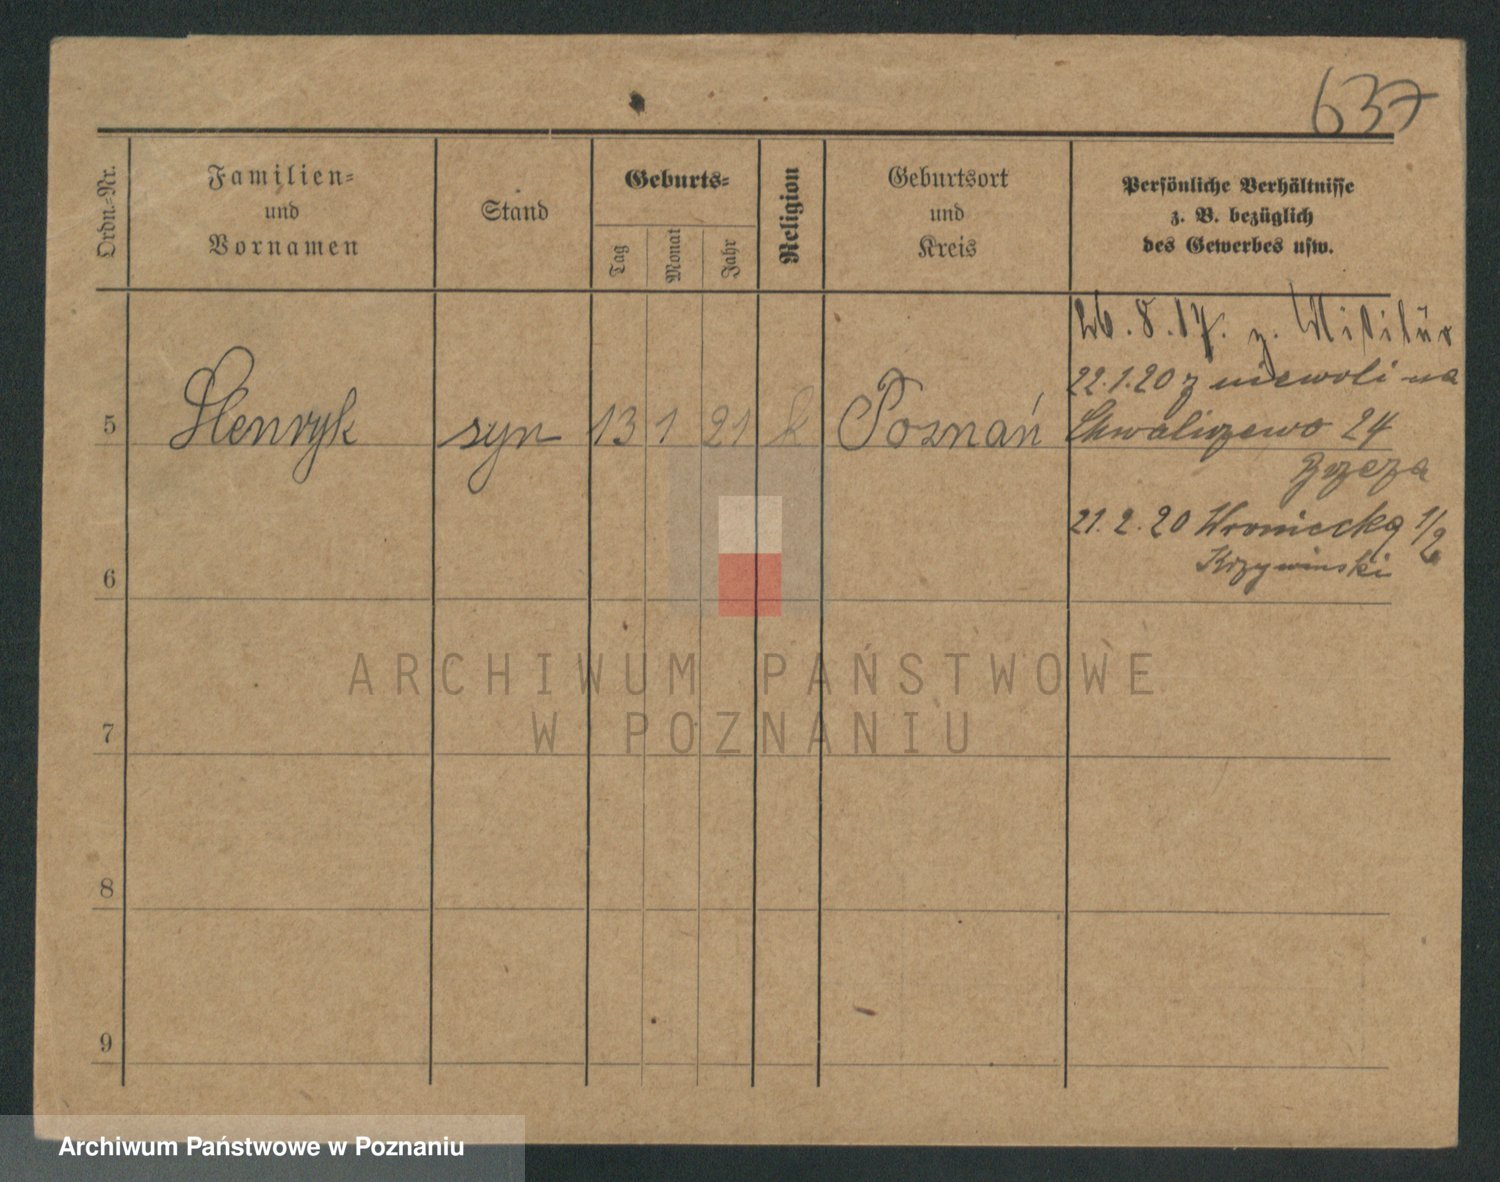 637
Ordn.-Nr.
Familien-
und
Vornamen
Stand
Geburts-
Tag
Monat
Jahr
Religion
Geburtsort
und
Kreis
Persönliche Verhältnisse
z. B. bezüglich
des Gewerbes usw.
26.8.17. z. Militär
22.1.20 z niewoli na
5 Henryk syn 13 1 21 k Poznań Chwaliszewo 24
21.2.20 Wroniecka 1/2
Krzywinski
6
7
8
9
ARCHIWUM PAŃSTWOWE
W POZNANIU
Archiwum Państwowe w Poznaniu